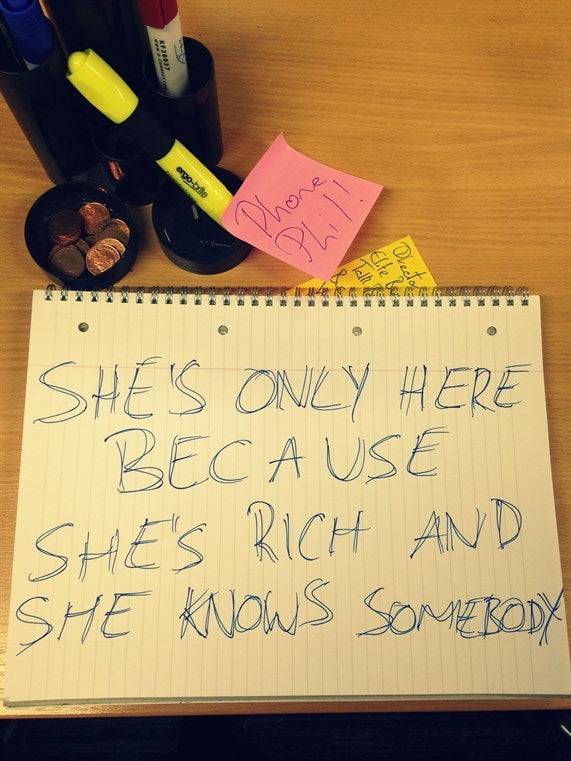 ergo-brite
Phone
Phil!
Director
Elite
Talk
&
SHE'S ONLY HERE
BECAUSE
SHE'S RICH AND
SHE KNOWS SOMEBODY